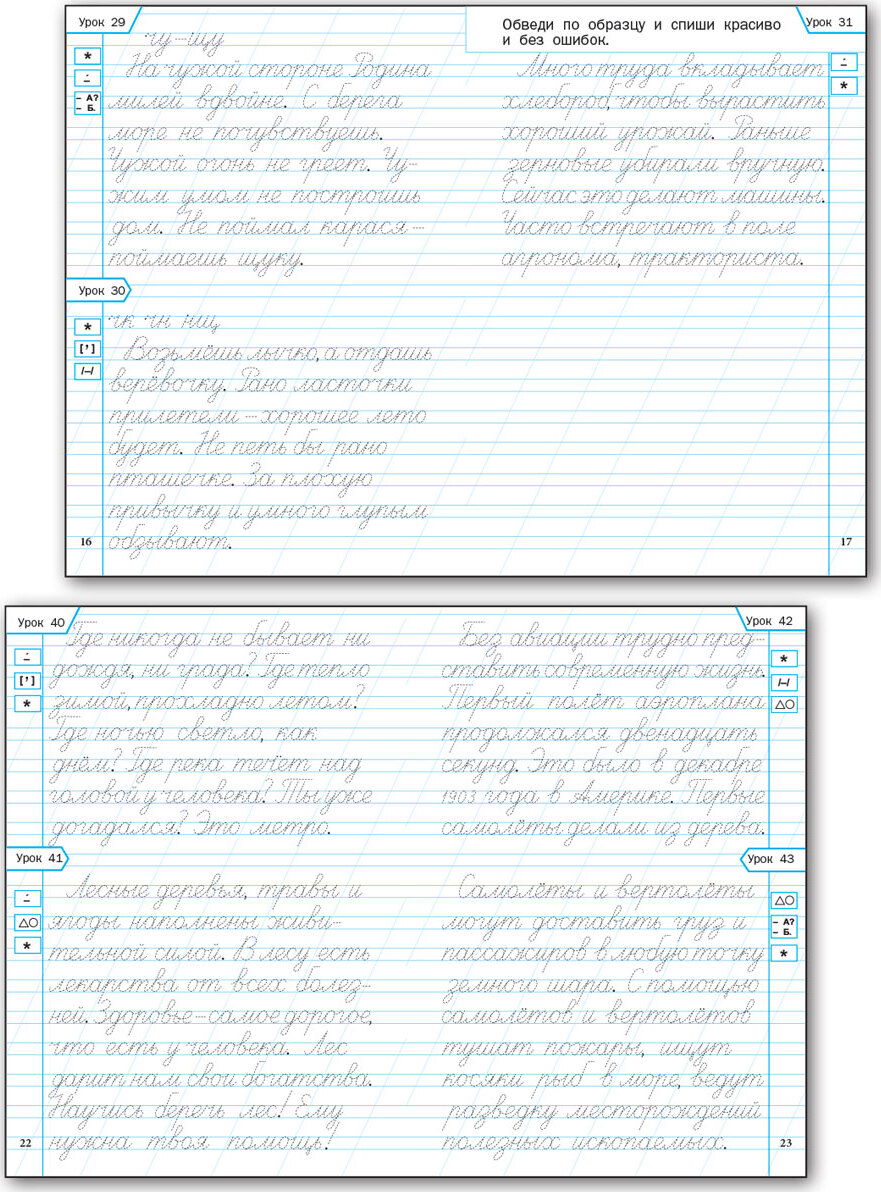 Урок 29
*
÷
– А?
– Б.
чу-щу
На чужой стороне Родина
милей вдвойне. С берега
море не почувствуешь.
Чужой огонь не греет. Чу-
жим умом не построишь
дом. Не поймал карася –
поймаешь щуку.
Урок 30
*
[’]
/–/
чк чн нщ
Возьмёшь лычко, а отдашь
верёвочку. Рано ласточки
прилетели – хорошее лето
будет. Не петь бы рано
пташечке. За плохую
привычку и умного глупым
обзывают.
16
Обведи по образцу и спиши красиво
и без ошибок.
Урок 31
÷
*
Много труда вкладывает
хлебороб, чтобы вырастить
хороший урожай. Раньше
зерновые убирали вручную.
Сейчас это делают машины.
Часто встречают в поле
агронома, тракториста.
17
Урок 40
÷
[’]
*
Где никогда не бывает ни
дождя, ни града? Где тепло
зимой, прохладно летом?
Где ночью светло, как
днём? Где река течёт над
головой у человека? Ты уже
догадался? Это метро.
Урок 41
÷
△○
*
Лесные деревья, травы и
ягоды наполнены живи-
тельной силой. В лесу есть
лекарства от всех болез-
ней. Здоровье – самое дорогое,
что есть у человека. Лес
дарит нам свои богатства.
Научись беречь лес! Ему
нужна твоя помощь!
22
Урок 42
*
/–/
△○
Без авиации трудно пред-
ставить современную жизнь.
Первый полёт аэроплана
продолжался двенадцать
секунд. Это было в декабре
1903 года в Америке. Первые
самолёты делали из дерева.
Урок 43
△○
– А?
– Б.
*
Самолёты и вертолёты
могут доставить груз и
пассажиров в любую точку
земного шара. С помощью
самолётов и вертолётов
тушат пожары, ищут
косяки рыб в море, ведут
разведку месторождений
полезных ископаемых.
23